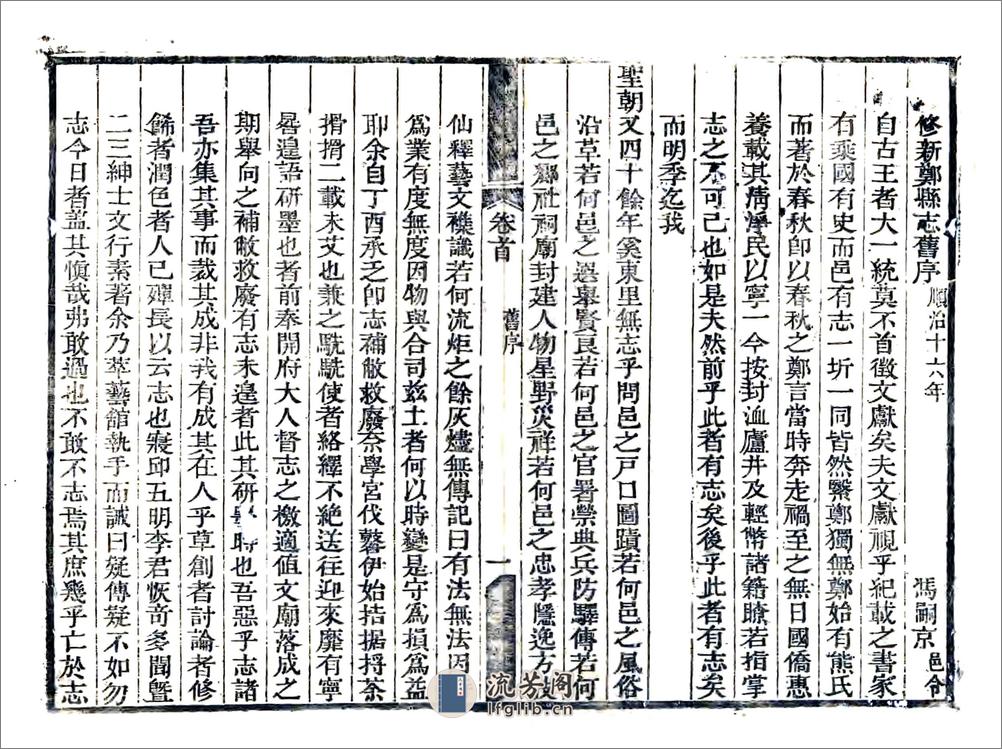 修新鄭縣志舊序 順治十六年 馮嗣京 邑令
自古王者大一統莫不首徵文獻矣夫文獻視乎紀載之書家
有乘國有史而邑有志一圻一同皆然繄鄭獨無鄭始有熊氏
而著於春秋卽以春秋之鄭言當時奔走禍至之無日國僑惠
養載其淸淨民以寧一今按封洫廬井及輕幣諸籍瞭若指掌
志之不可已也如是夫然前乎此者有志矣後乎此者有志矣
而明季迄我
聖朝又四十餘年奚東里無志乎問邑之戸口圖蹟若何邑之風俗
沿革若何邑之選舉賢良若何邑之官署祭典兵防驛傳若何
邑之鄉社祠廟封建人物星野災祥若何邑之忠孝隱逸方技
卷首 舊序 一
仙釋藝文襍識若何流炬之餘灰燼無傳記曰有法無法因
爲業有度無度因物與合司茲土者何以時變是守爲損爲益
耶余自丁酉承乏卽志補敝救廢奈學宮伐鼛伊始拮据捋荼
搰搰二載未艾也兼之駪駪使者絡繹不絶送往迎來靡有寧
晷遑語研墨也者前奉開府大人督志之檄適值文廟落成之
期舉向之補敝救廢有志未遑者此其研墨時也吾惡乎志諸
吾亦集其事而裁其成非我有成其在人乎草創者討論者修
餙者潤色者人已殫長以云志也寢邱五明李君恢竒多聞曁
二三紳士文行素著余乃萃藝舘執手而誡曰疑傳疑不如勿
志今日者盖其愼哉弗敢過也不敢不志焉其庶幾乎亡於志
流芳阁
lfglib.cn